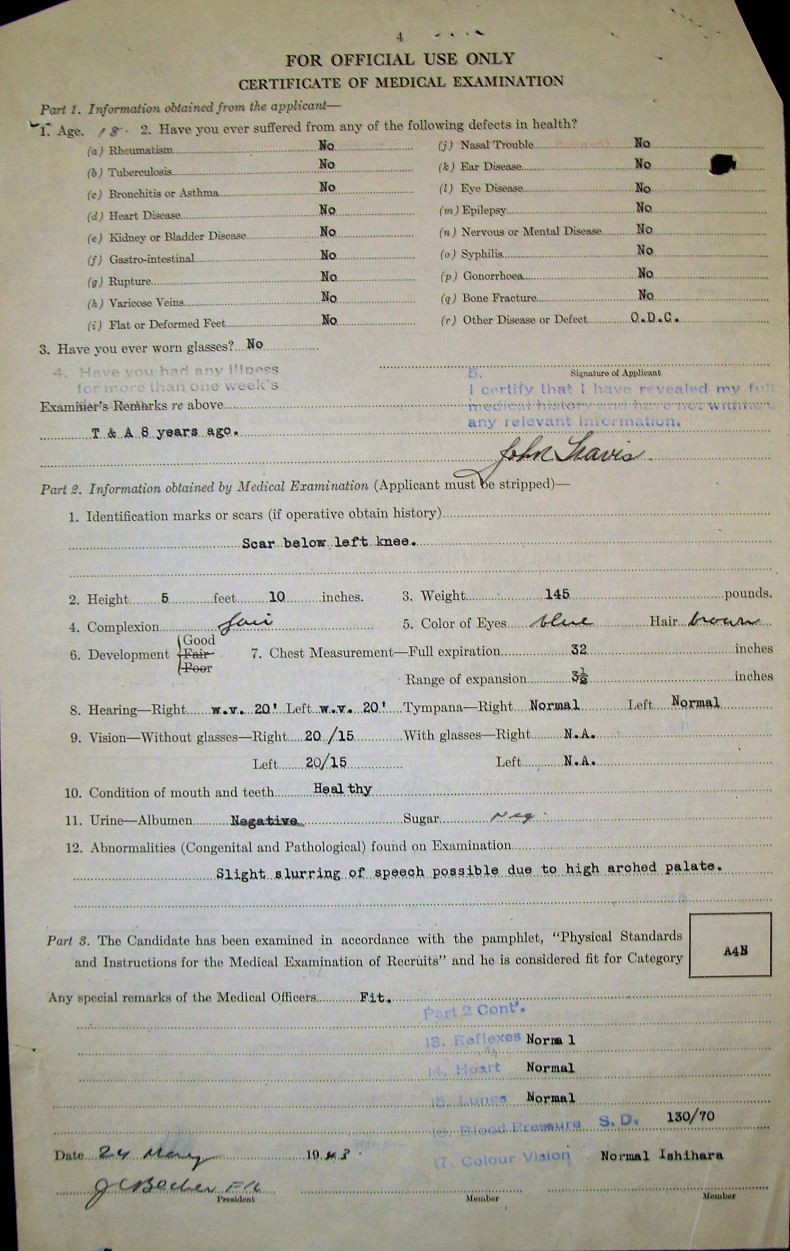 4
FOR OFFICIAL USE ONLY
CERTIFICATE OF MEDICAL EXAMINATION
Part 1. Information obtained from the applicant—
1. Age. 18. 2. Have you ever suffered from any of the following defects in health?
(a) Rheumatism No (j) Nasal Trouble No
(b) Tuberculosis No (k) Ear Disease No
(c) Bronchitis or Asthma No (l) Eye Disease No
(d) Heart Disease No (m) Epilepsy No
(e) Kidney or Bladder Disease No (n) Nervous or Mental Disease No
(f) Gastro-intestinal No (o) Syphilis No
(g) Rupture No (p) Gonorrhoea No
(h) Varicose Veins No (q) Bone Fracture No
(i) Flat or Deformed Feet No (r) Other Disease or Defect O.D.C.
3. Have you ever worn glasses? No
4. Have you had any illness 5. Signature of Applicant
for more than one week's I certify that I have revealed my full
Examiner's Remarks re above medical history and have not withheld
T & A 8 years ago. any relevant information.
John Travis
Part 2. Information obtained by Medical Examination (Applicant must be stripped)—
1. Identification marks or scars (if operative obtain history)
Scar below left knee.
2. Height 5 feet 10 inches. 3. Weight 145 pounds.
4. Complexion fair 5. Color of Eyes blue Hair brown
6. Development Good Fair Poor 7. Chest Measurement—Full expiration 32 inches
Range of expansion 3½ inches
8. Hearing—Right w.v. 20' Left w.v. 20' Tympana—Right Normal Left Normal
9. Vision—Without glasses—Right 20/15 With glasses—Right N.A.
Left 20/15 Left N.A.
10. Condition of mouth and teeth Healthy
11. Urine—Albumen Negative Sugar neg.
12. Abnormalities (Congenital and Pathological) found on Examination
Slight slurring of speech possible due to high arched palate.
Part 3. The Candidate has been examined in accordance with the pamphlet, "Physical Standards
and Instructions for the Medical Examination of Recruits" and he is considered fit for Category A4B
Any special remarks of the Medical Officers Fit.
Part 2 Cont'.
13. Reflexes Normal
14. Heart Normal
15. Lungs Normal
16. Blood Pressure S. D. 130/70
Date 24 May 1943. 17. Colour Vision Normal Ishihara
President Member Member